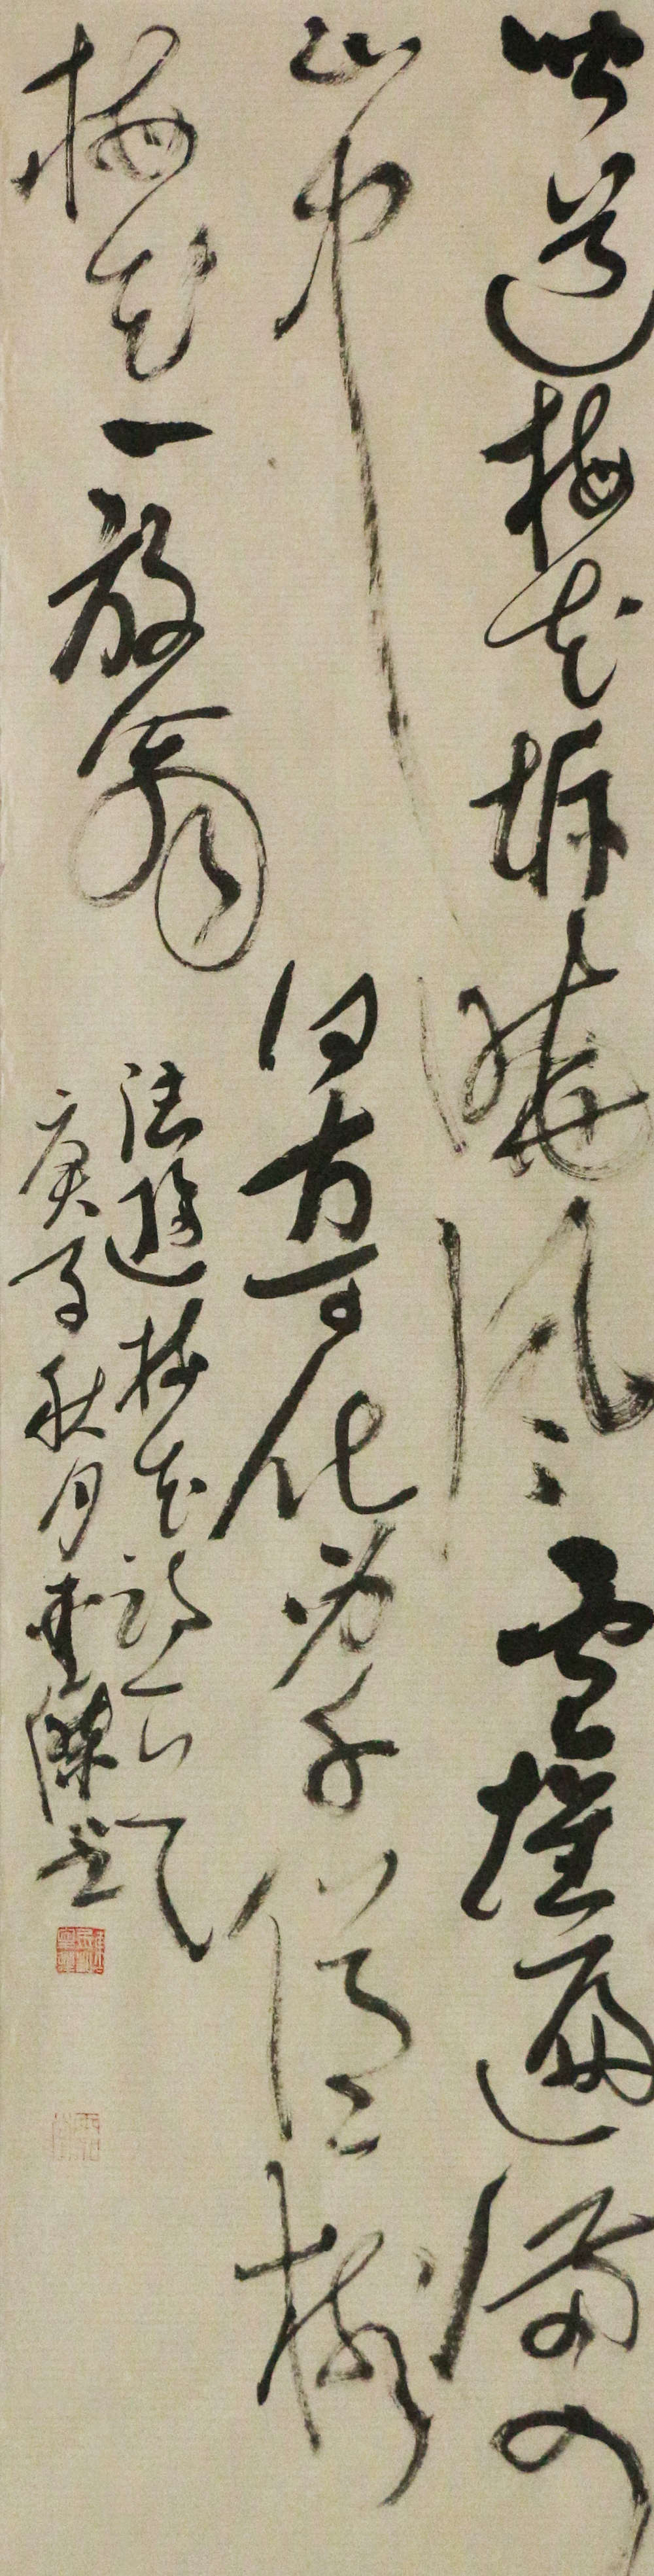 聞道梅花坼曉風雪堆遍滿四
山中何方可化身千億一樹
梅花一放翁
陸遊梅花詩一首
庚子秋月傑書